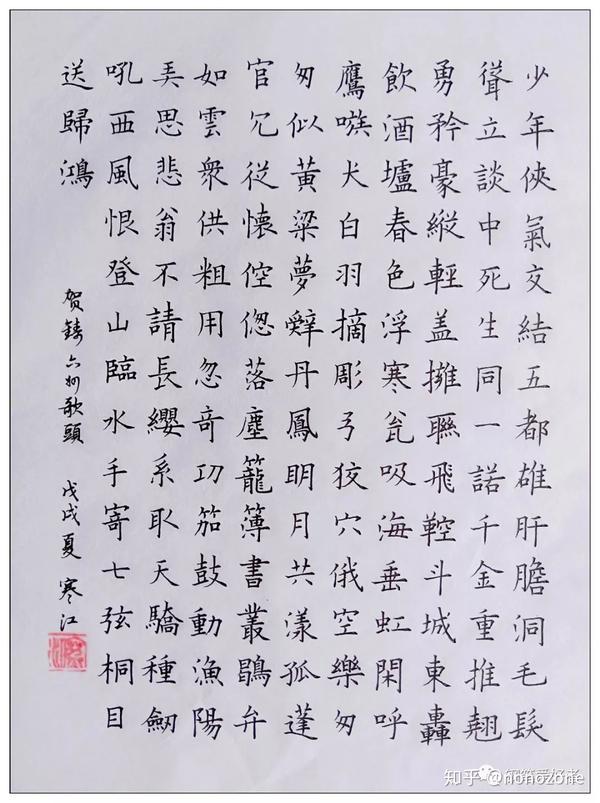 少年俠氣交結五都雄肝膽洞毛髮
聳立談中死生同一諾千金重推翹
勇矜豪縱輕盖擁聮飛鞚斗城東轟
飲酒壚春色浮寒瓮吸海垂虹閑呼
鷹嗾犬白羽摘彫弓狡穴俄空樂匆
匆似黃粱夢辤丹鳳眀月共漾孤蓬
官冗從懷倥偬落塵籠簿書叢鶡弁
如雲衆供粗用忽奇功笳鼓動漁陽
弄思悲翁不請長纓系取天驕種劒
吼西風恨登山臨水手寄七弦桐目
送歸鴻
贺鑄六州歌頭 戊戌夏 寒江
知乎 @nonozone